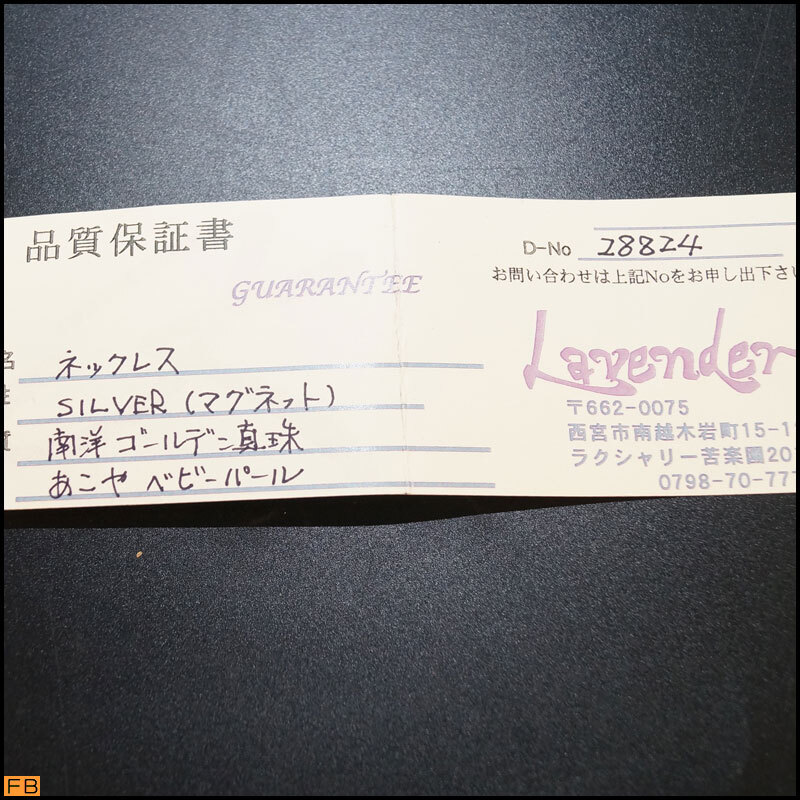 品質保証書
GUARANTEE
名 ネックレス
SILVER (マグネット)
質 南洋ゴールデン真珠
あこや ベビーパール
D-No 28824
お問い合わせは上記Noをお申し出下さい
Lavender
〒662-0075
西宮市南越木岩町15-1
ラクシャリー苦楽園20
0798-70-777
FB